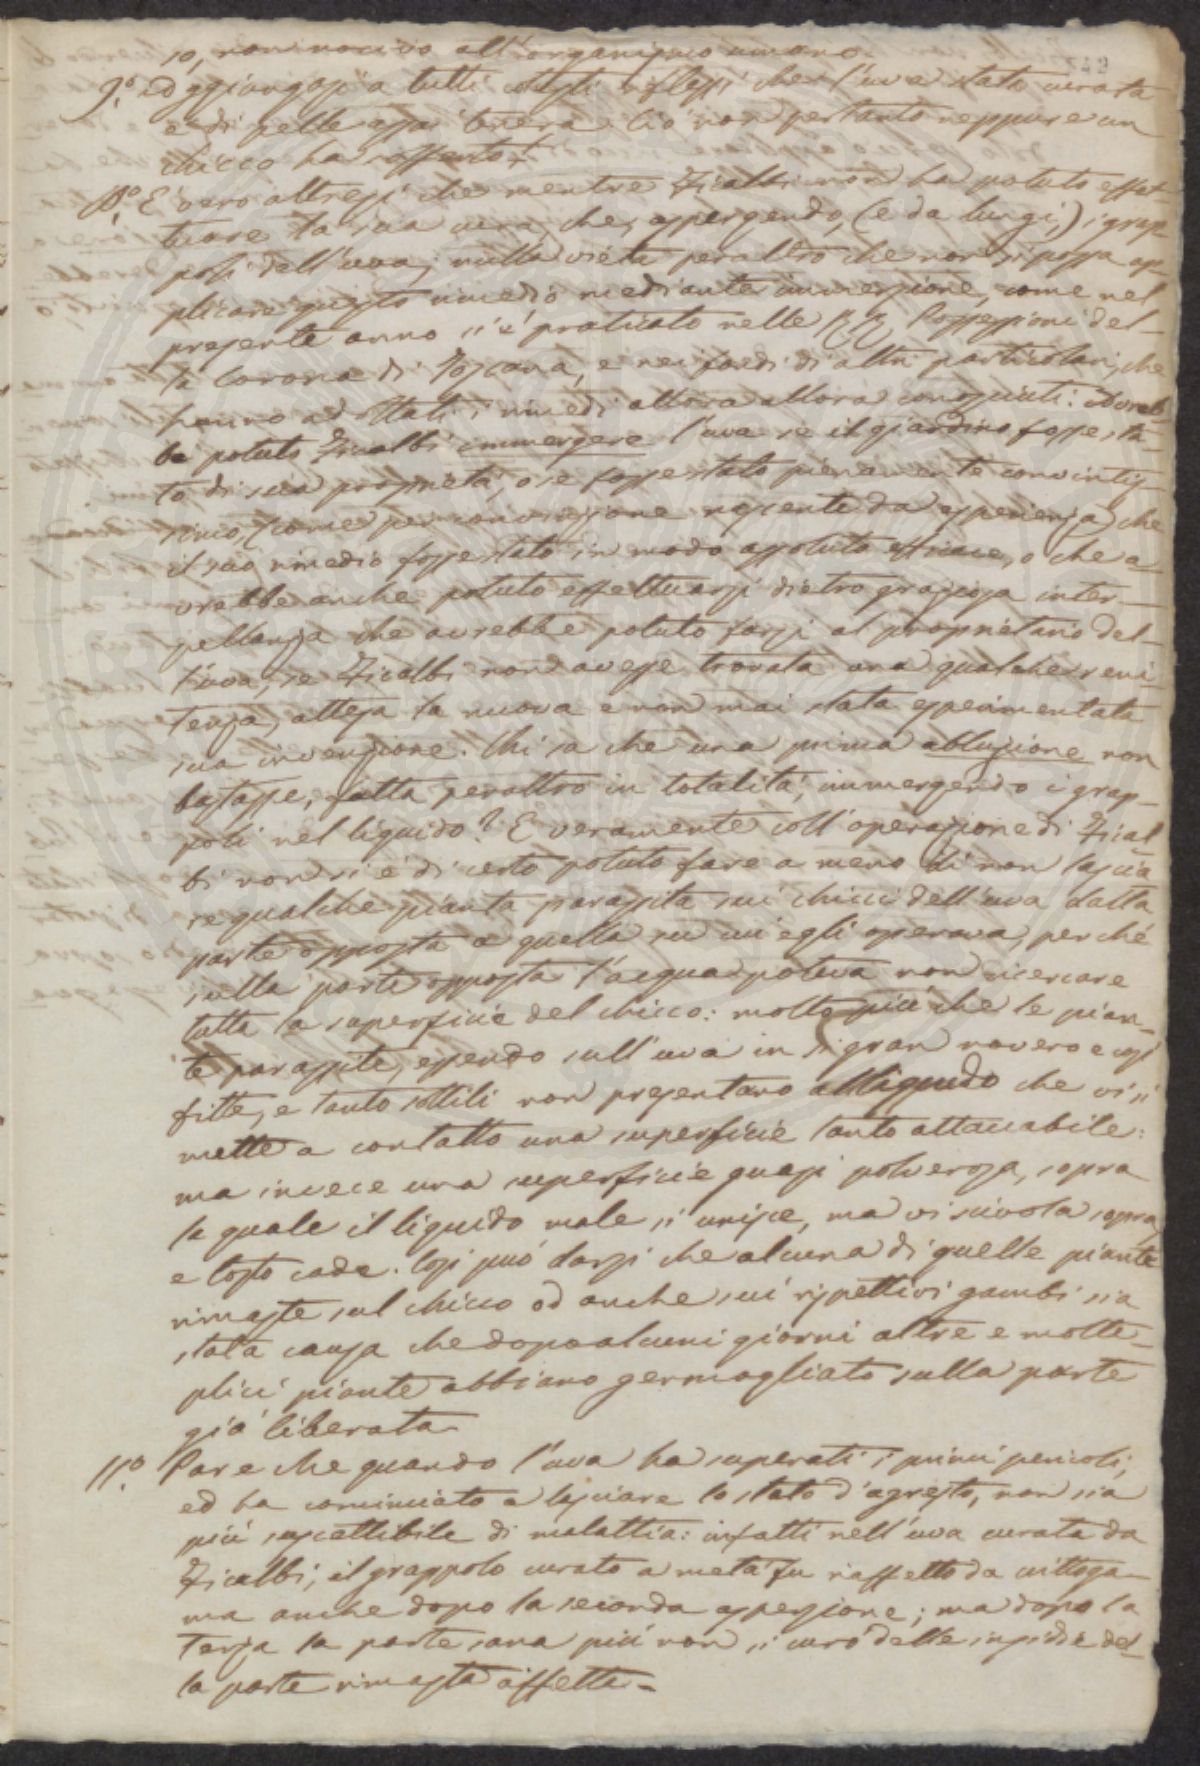 so, non nocivo all'organismo umano.
9.º ed aggiungasi a tutti cotesti riflessi che l'uva stata curata
è di pelle assai tenera e ciò non pertanto neppure un
chicco ha sofferto.
10.º È vero altresì che mentre Ficalbi non ha potuto effet-
tuare la sua cura che aspergendo, (e da lungi,) i grap-
poli dell'uva; nulla vieta peraltro che non si possa ap-
plicare questo rimedio mediante immersione, come nel
presente anno si è praticato nelle RR. Possessioni del-
la Corona di Toscana, e nei fondi di altri particolari, che
hanno adottati i rimedi allora allora conosciuti. Avreb-
be potuto Ficalbi immergere l'uva se il giardino fosse sta-
to di sua proprietà, o se fosse stato pienamente convintis-
simo, (come per convinzione nascente da esperienza) che
il suo rimedio fosse stato in modo assoluto efficace, o che a-
vrebbe anche potuto effettuarsi dietro graziosa inter-
pellanza che avrebbe potuto farsi al proprietario del-
l'uva, se Ficalbi non avesse trovata una qualche reni-
tenza, attesa la nuova e non mai stata esperimentata
sua invenzione. Chi sa che una prima abluzione non
bastasse, fatta peraltro in totalità, immergendo i grap-
poli nel liquido? E veramente coll'operazione di Fical-
bi non si è di certo potuto fare a meno di non lascia
re qualche pianta parassita sui chicci dell'uva dalla
parte opposta a quella su cui egli operava, perché
sulla parte opposta l'acqua poteva non ricercare
tutta la superficie del chicco: molto più che le pian-
te parassite, essendo sull'uva in sì gran novero e così
fitte, e tanto sottili non presentano al liquido che vi si
mette a contatto una superficie tanto attaccabile:
ma invece una superficie quasi polverosa, sopra
la quale il liquido male si unisce, ma vi scivola sopra
e tosto cade. Così può darsi che alcuna di quelle piante
rimaste sul chicco od anche sui rispettivi gambi sia
stata causa che dopo alcuni giorni altre e molte-
plici piante abbiano germogliato sulla parte
già liberata.
11.º Pare che quando l'uva ha superati i primi pericoli,
ed ha cominciato a lasciare lo stato d'agresto, non sia
più suscettibile di malattia: infatti nell'uva curata da
Ficalbi, il grappolo curato a metà fu riaffetto da crittoga-
ma anche dopo la seconda aspersione; ma dopo la
terza la parte sana più non si curò delle insidie del-
la parte rimasta affetta.